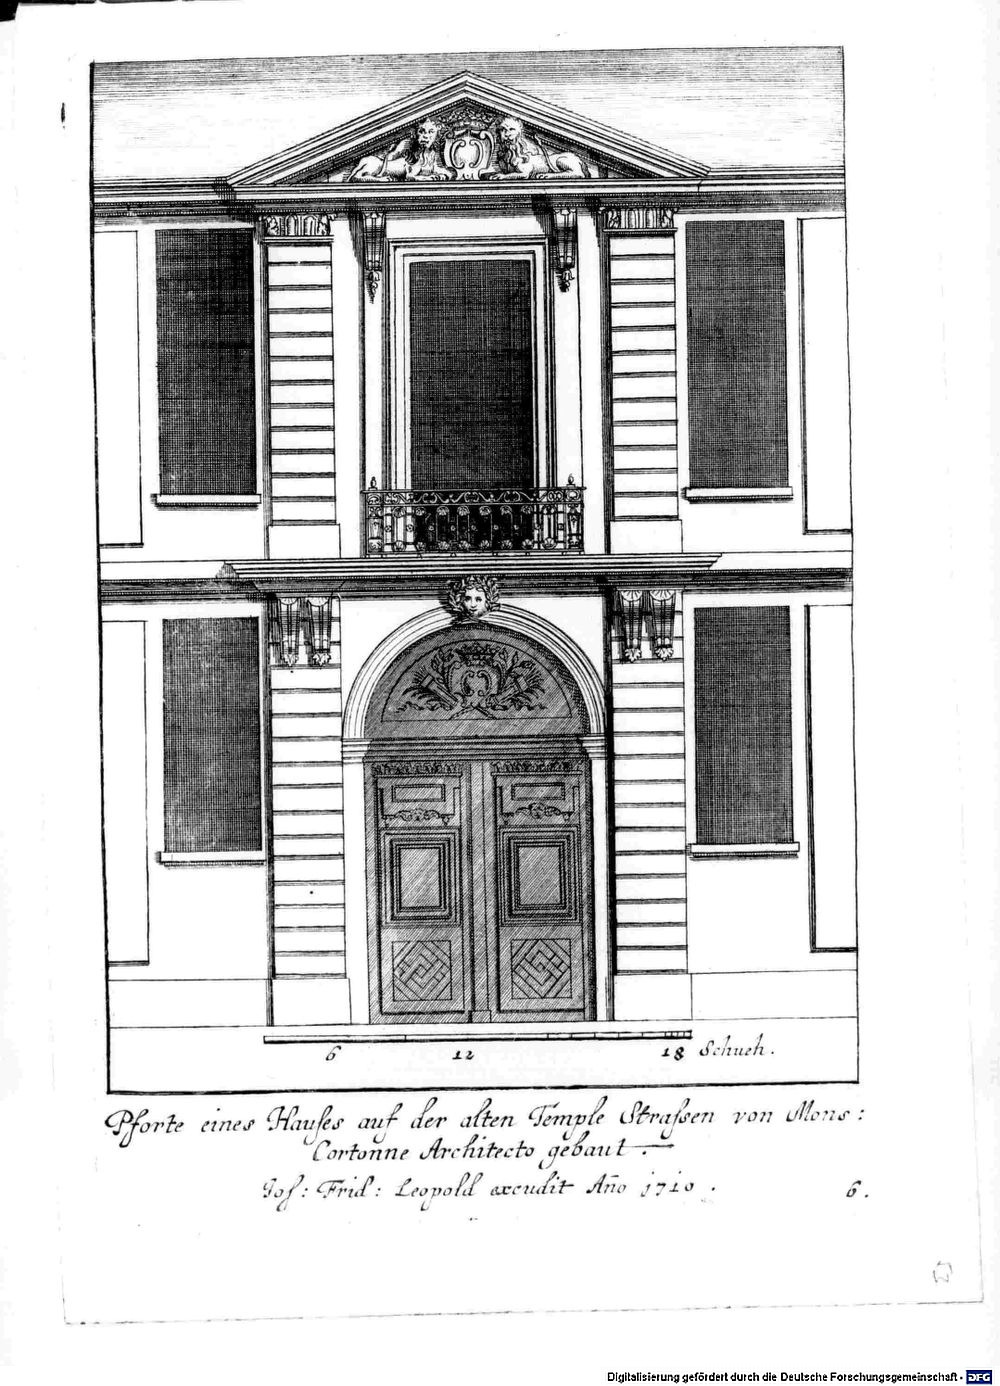 6 12 18 Schueh.
Pforte eines Hauses auf der alten Temple Strassen von Mons:
Cortonne Architecto gebaut.
Jos: Frid: Leopold excudit Año 1710. 6.
Digitalisierung gefördert durch die Deutsche Forschungsgemeinschaft - DFG